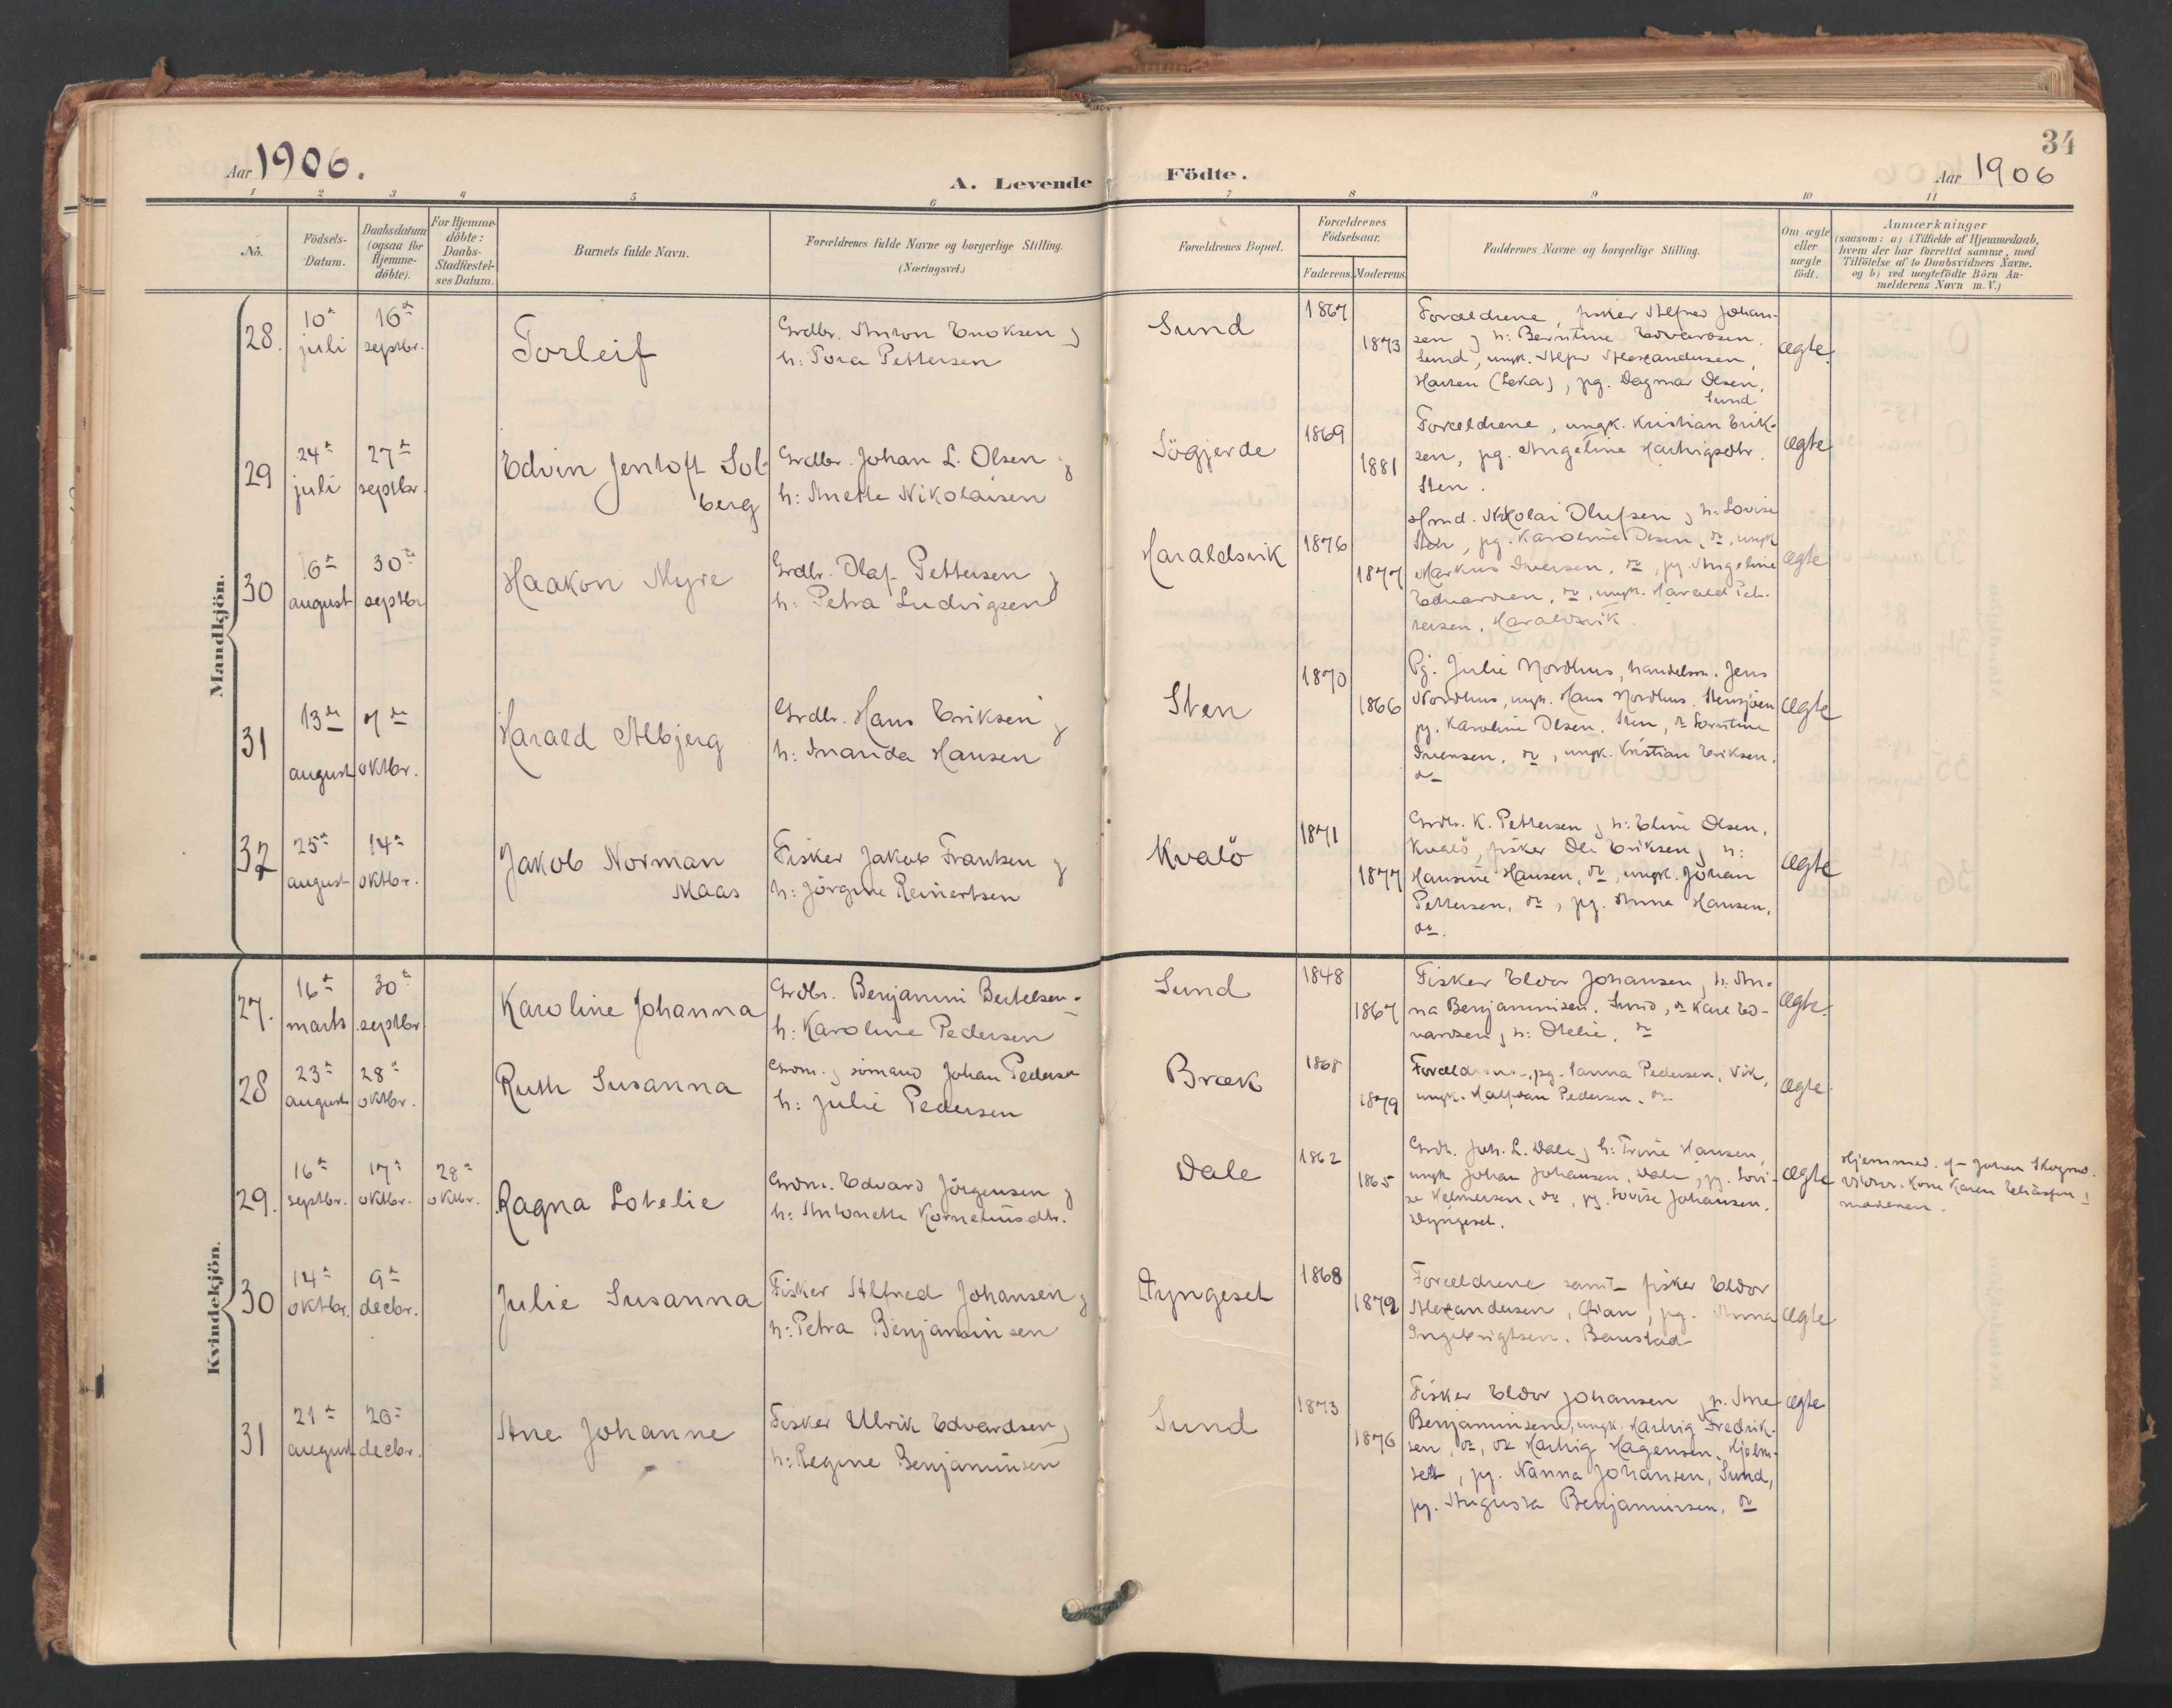 34
Aar 1906.
A. Levende Födte.
Aar 1906
1 2 3 4 5 6 7 8 9 10 11
No.
Födsels-
Datum.
Daabsdatum
(ogsaa for
Hjemme-
döbte).
For Hjemme-
döbte:
Daabs-
Stadfæstel-
ses Datum.
Barnets fulde Navn.
Forældrenes fulde Navne og borgerlige Stilling.
(Næringsvei.)
Forældrenes Bopæl.
Forældrenes
Födselsaar.
Faderens. Moderens.
Faddernes Navne og borgerlige Stilling.
Om ægte
eller
uægte
födt.
Anmærkninger
(saasom: a) i Tilfælde af Hjemmedaab,
hvem der har forrettet samme, med
Tilföielse af to Daabsvidners Navne.
og b) ved uægtefödte Börn An-
melderens Navn m. V.)
Mandkjön.
28.
10de
juli
16de
septbr.
Torleif
Grdbr. Anton Enoksen og
h: Tora Pettersen
Sund
1867
1873
Forældrene, fisker Alfred Johan-
sen og h: Berntine Edvardsen.
Sund, ungk. Alfr Alexandersen,
Hansen (Leka), pg. Dagmar Olsen,
Sund
ægte.
29
24de
juli
27de
septbr.
Edvin Jentoft Sol-
berg
Grdbr. Johan L. Olsen og
h: Anette Nikolaisen
Sögjerde
1869
1881
Forældrene, ungk. Kristian Erik-
sen, pg. Angeline Hartvigsdtr.
Sten.
ægte
30
16de
august
30te
septbr
Haakon Myre
Grdbr. Olaf Pettersen og
h: Petra Ludvigsen
Haraldsvik
1876
1877
Nikolai Olufsen og h: Lovise
pg. Karoline Olsen, do, ungk
Markus Iversen, do, pg. Angeline
Edvardsen, do, ungk. Harald Pet-
tersen, Haraldsvik.
ægte
31
13de
august
7de
oktbr.
Harald Albjerg
Grdbr. Hans Eriksen og
h: Inanda Hansen
Sten
1870
1866
Pg. Julie Nordhus, handelsm. Jens
Nordhus, ungk. Hans Nordhus. Stensjöen
pg. Karoline Olsen. Sten, do
Iversen. do, ungk. Kristian Eriksen.
do
ægte
32
25de
august
14de
oktbr.
Jakob Norman
Maas
Fisker Jakob Frantsen og
h: Jörgine Reinertsen
Kvalö
1871
1877
Grdbr. K. Pettersen og h: Eline Olsen,
Kvalö, fisker Ole Eriksen og h:
Hansine Hansen, do, ungk. Johan
Pettersen, do, pg. Anna Hansen,
do.
ægte
Kvindekjön.
27.
16de
marts
30te
septbr
Karoline Johanna
Grdbr. Benjamin Bertelsen
h: Karoline Pedersen
Sund
1848
1867
Fisker Eldor Johansen og h: An-
na Benjaminsen. Sund, do Karl Ed-
vardsen og h: Otelie. do
ægte.
28
23de
august
28de
oktbr.
Ruth Susanna
Grdm. og sömand Johan Pedersen
h: Julie Pedersen
Bræk
1868
1879
Forældrene, pg. Sanna Pedersen, Vik,
ungk. Halfdan Pedersen. do.
ægte
29.
16de
septbr.
17de
oktbr.
28de
oktbr.
Ragna Lotelie
Grdm. Edvard Jörgensen og
h: Antonette Korneliusdtr.
Dale
1862
1865
Grdb. Joh. L. Dale og h: Trine Hansen,
ungk Johan Johansen, Dale, pg. Lovi-
se Velmersen, do, pg. Lovise Johansen,
Dyngeset.
ægte
Hjemmed. af Johan
Vidner. Kone Karen Eliassen og
moderen.
30
14de
oktbr.
9de
decbr.
Julie Susanna
Fisker Alfred Johansen og
h: Petra Benjaminsen
Dyngeset
1868
1879
Forældrene samt fisker Eldor
Alexandersen, pg. Anna
Ingebrigtsen. Baustad
ægte
31
21de
august
26de
decbr.
Ane Johanne
Fisker Ulrik Edvardsen og
h: Regine Benjaminsen
Sund
1873
1876
Fisker Eldor Johansen og h. Ane
Benjaminsen, ungk. Hartvig Fredrik-
sen, do, do Hartvig Hagensen. Hjelm-
sett, pg. Nanna Johansen, Sund,
pg. Augusta Benjaminsen. do
ægte